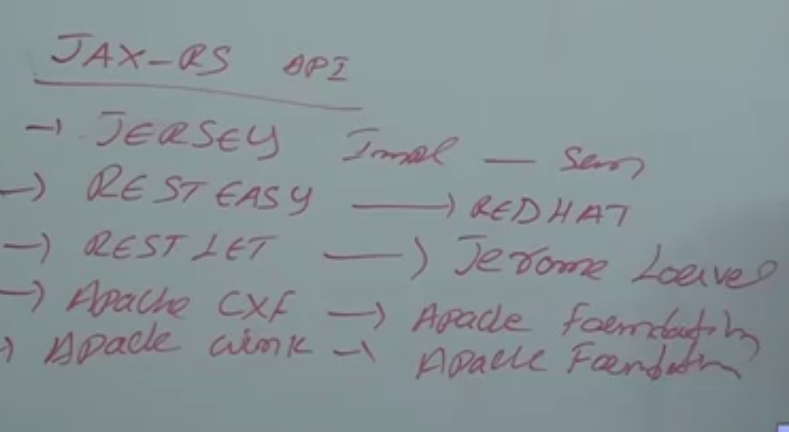 JAX-RS API
→ JERSEY Impl — Sun
→ RESTEASY → REDHAT
→ RESTLET → Jerome Louvel
→ Apache CXF → Apache Foundation
→ Apache Wink → Apache Foundation